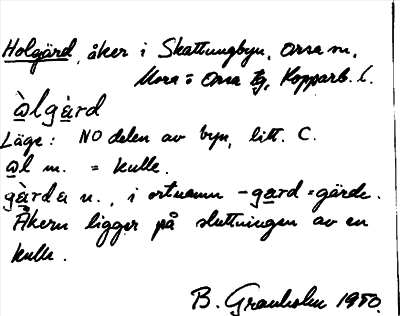 Holgärd, åker i Skattungbyn, Orsa sn,
Mora o Orsa tg, Kopparb. l.
àlgàrd
Läge: NO delen av byn, litt. C.
ɑl m. = kulle.
gàrda n., i ortnamn -gard = gärde.
Åkern ligger på sluttningen av en
kulle.
B. Granholm 1950.